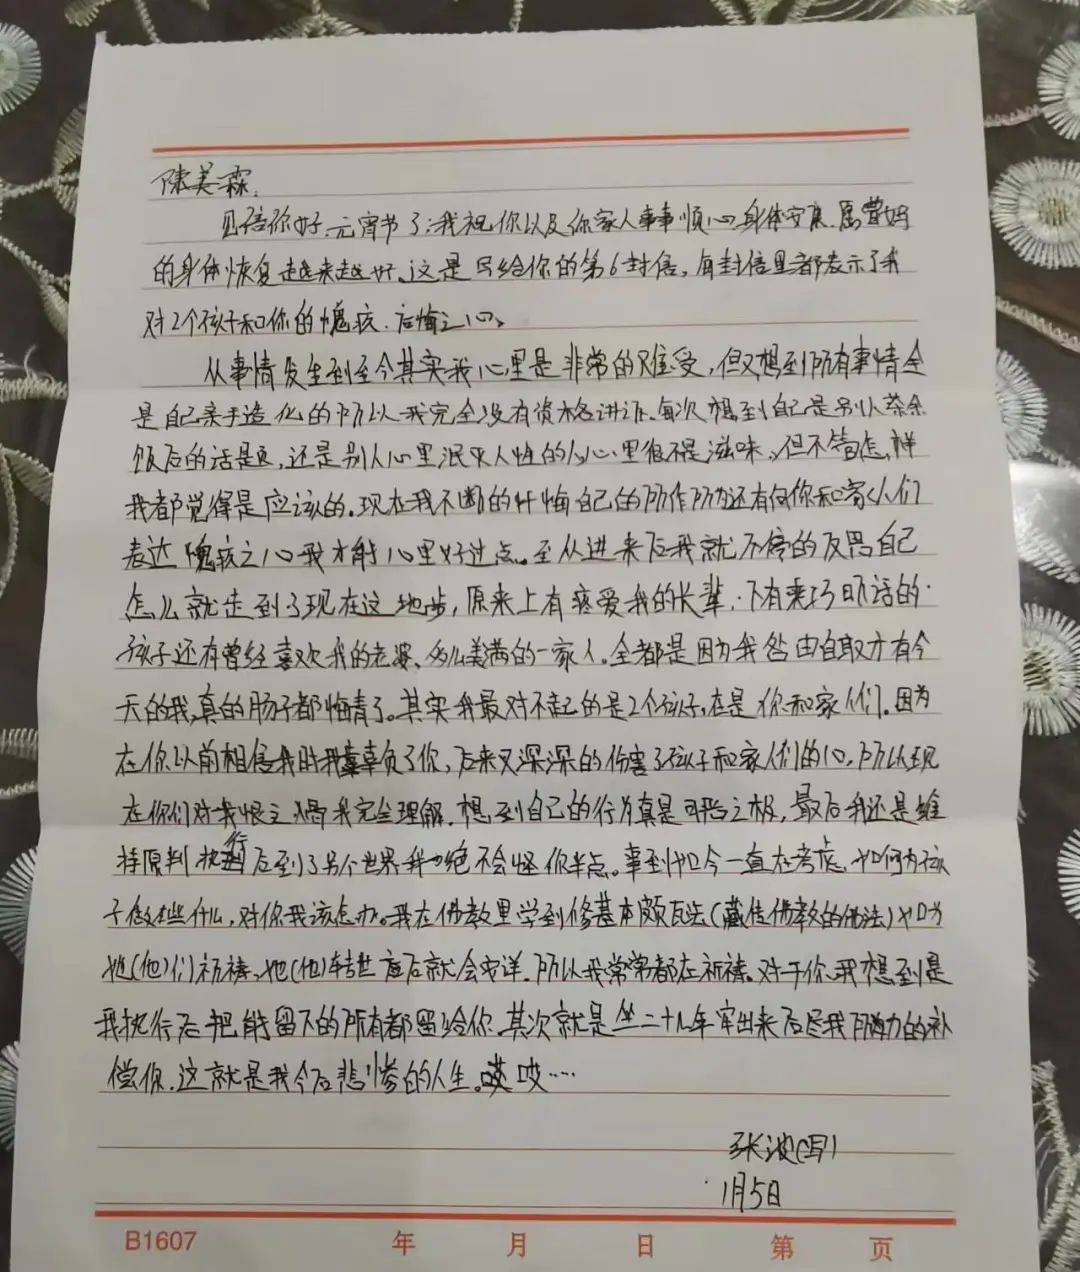 陈美霖:
见信你好，元宵节了，我祝你以及你家人事事顺心身体安康，愿曹妈
的身体恢复越来越好。这是写给你的第6封信，每封信里都表示了我
对2个孩子和你的愧疚、后悔之心。
从事情发生到至今其实我心里是非常的难受，但又想到所有事情全
是自己亲手造化的所以我完全没有资格讲诉。每次想到自己是别人茶余
饭后的话题，还是别人心里泯灭人性的人心里很不是滋味，但不管怎样
我都觉得是应该的。现在我不断的忏悔自己的所作所为还有向你和家人们
表达愧疚之心我才能心里好过点。至从进来后我就不停的反思自己
怎么就走到了现在这地步，原来上有疼爱我的长辈，下有乖巧听话的
孩子还有曾经喜欢我的老婆、多么美满的一家人。全都是因为我咎由自取才有今
天的我，真的肠子都悔青了。其实我最对不起的是2个孩子，在是你和家人们。因为
在你以前相信我时我辜负了你，后来又深深的伤害了孩子和家人们的心，所以现
在你们对我恨之 我完全理解。想到自己的行为真是可恶之极，最后我还是维
持原判执行后到了另个世界我也绝不会怪你半点。事到如今一直在考虑，如何为孩
子做些什么，对你我该怎办。我在佛教里学到修基本颇瓦法（藏传佛教的佛法）如为
她（他）们祈祷，她（他）转世 后就会安详。所以我常常都在祈祷。对于你、我想到是
我执行后把能留下的所有都留给你。其次就是坐二十几年牢出来后尽我所能力的补
偿你。这就是我今后悲惨的人生。哎哎……
张波(写)
1月5日
B1607 年 月 日 第 页